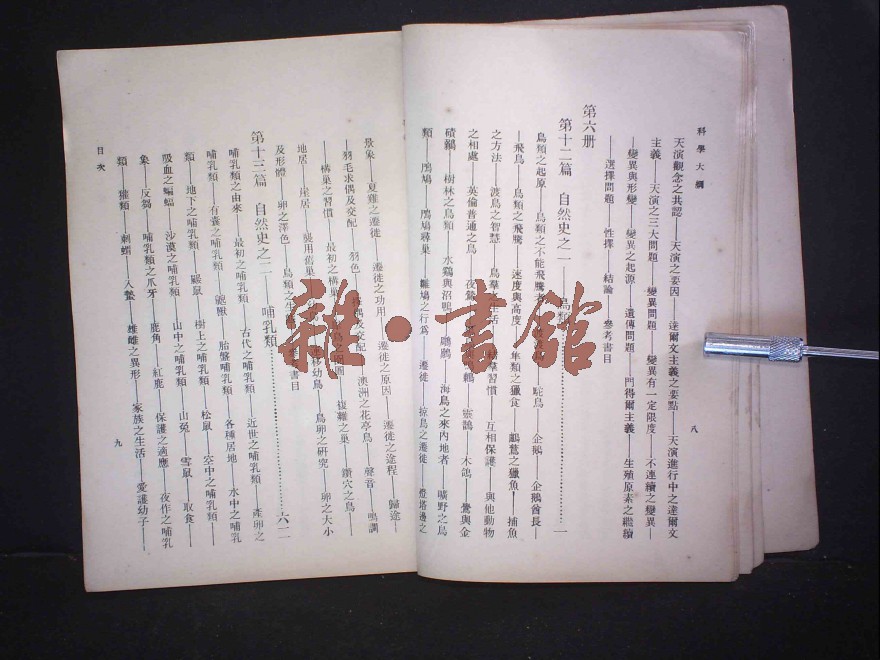 科學大綱
八
天演觀念之共認——天演之要因——達爾文主義之要點——天演進行中之達爾文
主義——天演之三大問題——變異問題——變異有一定限度——不連續之變異——
變異與形變——變異之起源——遺傳問題——門得爾主義——生殖原素之繼續
——選擇問題——性擇——結論——參考書目
第六册
第十二篇 自然史之一——鳥類 一
鳥類之起原——鳥類之不能飛騰者 鴕鳥——企鵝——企鵝酋長——
飛鳥——鳥類之飛騰——速度與高度——隼類之獵食——鵜鶿之獵魚——捕魚
之方法——渡鳥之智慧——鳥羣 生活 羣習慣——互相保護——與他動物
之相處——英倫普通之鳥——夜鶯 鶴——靈鵲——木鴿——鷺與金
磧鶸——樹林之鳥類——水鷄與沼 鷗鷉——海鳥之來內地者——曠野之鳥
類——鳲鳩——鳲鳩尋巢——雛鳩之行爲——遷徙——掠鳥之遷徙——燈塔邊之
景象——夏雞之遷徙——遷徙之功用——遷徙之原因——遷徙之途程——歸途——
羽毛求偶及交配——羽色 偶及交配——澳洲之花亭鳥——聲音——鳴調
——構巢之習慣——最初之構巢 鳥之 圈——複雜之巢——鑽穴之鳥——
地居——崖居——襲用舊巢 移幼鳥——鳥卵之研究——卵之大小
及形體——卵之澤色——鳥類之生 參考書目
第十三篇 自然史之二 哺乳類 六二
哺乳類之由來——最初之哺乳類 古代之哺乳類——近世之哺乳類——產卵之
哺乳類——有囊之哺乳類 胎盤哺乳類——各種居地——水中之哺乳
類——地下之哺乳類——鼹鼠 樹上之哺乳類——松鼠——空中之哺乳類——
吸血之蝙蝠——沙漠之哺乳類 山中之哺乳類——山兎——雪鼠——取食——
象——反芻——哺乳類之爪牙——鹿角——紅鹿——保護之適應——夜作之哺乳
類——獾類——刺蝟——入蟄——雄雌之異形——家族之生活——愛護幼子——
目次
九
雜·書館